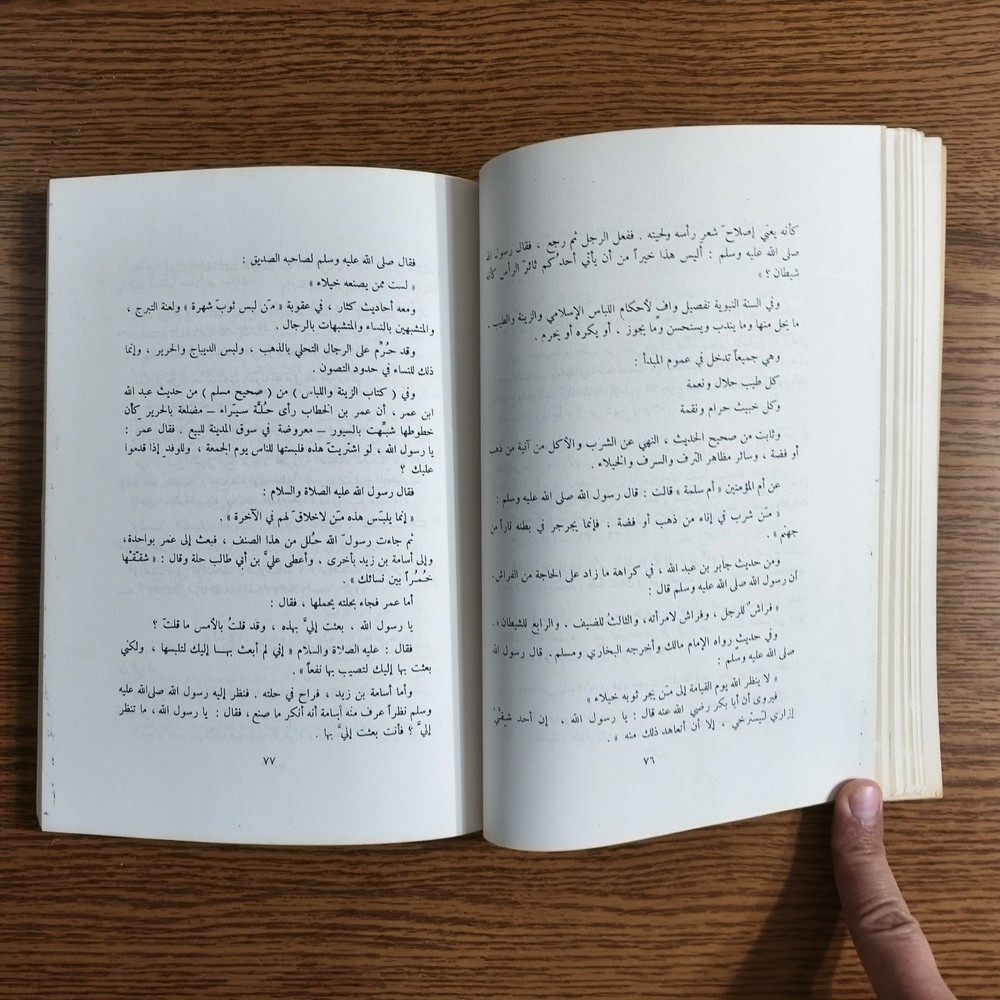 كأنه يعني إصلاحَ شعرِ رأسه ولحيته . ففعل الرجل ثم رجع ، فقال رسول الله
صلى الله عليه وسلم : أليس هذا خيراً من أن يأتي أحدُكم ثائرَ الرأس كأنه
شيطان ؟ »
وفي السنة النبوية تفصيل وافٍ لأحكام اللباس الإسلامي والزينة والطيب .
ما يحل منها وما يندب ويستحسن وما يجوز . أو يكره أو يحرم .
وهي جميعاً تدخل في عموم المبدأ :
كل طيب حلال ونعمة
وكل خبيث حرام ونقمة
وثابت من صحيح الحديث ، النهي عن الشرب والأكل من آنية من ذهب
أو فضة ، وسائر مظاهر الترف والسرف والخيلاء .
عن أم المؤمنين « أم سلمة » قالت : قال رسول الله صلى الله عليه وسلم :
« مَن شرب في إناء من ذهب أو فضة ، فإنما يجرجر في بطنه ناراً من
جهنم » .
ومن حديث جابر بن عبد الله ، في كراهة ما زاد على الحاجة من الفراش.
أن رسول الله صلى الله عليه وسلم قال :
« فراشٌ للرجل ، وفراش لامرأته، والثالثُ للضيف . والرابع للشيطان ».
وفي حديثٍ رواه الإمام مالك وأخرجه البخاري ومسلم . قال رسول الله
صلى الله عليه وسلم :
« لا ينظر الله يوم القيامة إلى مَن يجر ثوبه خيلاء »
فيروى أن أبا بكر رضي الله عنه قال : يا رسول الله . إن أحد شِقَّيْ
إزاري لَيسترخي . إلا أن أتعاهد ذلك منه » .
٧٦
فقال صلى الله عليه وسلم لصاحبه الصديق :
« لست ممن يصنعه خيلاء »
ومعه أحاديث كثار ، في عقوبة « مَن لبس ثوبَ شهرة » ولعنة التبرج ،
والمتشبهين بالنساء والمتشبهات بالرجال .
وقد حُرِّم على الرجال التحلي بالذهب ، ولبس الديباج والحرير ، وإنما
ذلك للنساء في حدود التصون .
وفي ( كتاب الزينة واللباس ) من ( صحيح مسلم ) من حديث عبد الله
ابن عمر ، أن عمر بن الخطاب رأى حُلَّة سِيَراء – مضلعة بالحرير كأن
خطوطها شبِّهت بالسيور – معروضة في سوق المدينة للبيع . فقال عمر :
يا رسول الله ، لو اشتريتَ هذه فلبستها للناس يوم الجمعة ، وللوفد إذا قدموا
عليك ؟
فقال رسول الله عليه الصلاة والسلام :
« إنما يلبَس هذه مَن لاخلاقَ لهم في الآخرة » .
ثم جاءت رسولَ الله حُلل من هذا الصنف ، فبعث إلى عمر بواحدة،
وإلى أسامة بن زيد بأخرى ، وأعطى عليَّ بن أبي طالب حلة وقال : « شقِّقْها
خُمُراً بين نسائك » .
أما عمر فجاء بحلته يحملها ، فقال :
يا رسول الله ، بعثت إليَّ بهذه ، وقد قلتُ بالأمس ما قلتَ ؟
فقال : عليه الصلاة والسلام « إني لم أبعث بها إليك لتلبسها ، ولكني
بعثت بها إليك لتصيب بها نفعاً » .
وأما أسامة بن زيد ، فراح في حلته . فنظر إليه رسول الله صلى الله عليه
وسلم نظراً عرف منه أسامة أنه أنكر ما صنع ، فقال : يا رسول الله، ما تنظر
إليَّ ؟ فأنت بعثت إليَّ بها .
٧٧